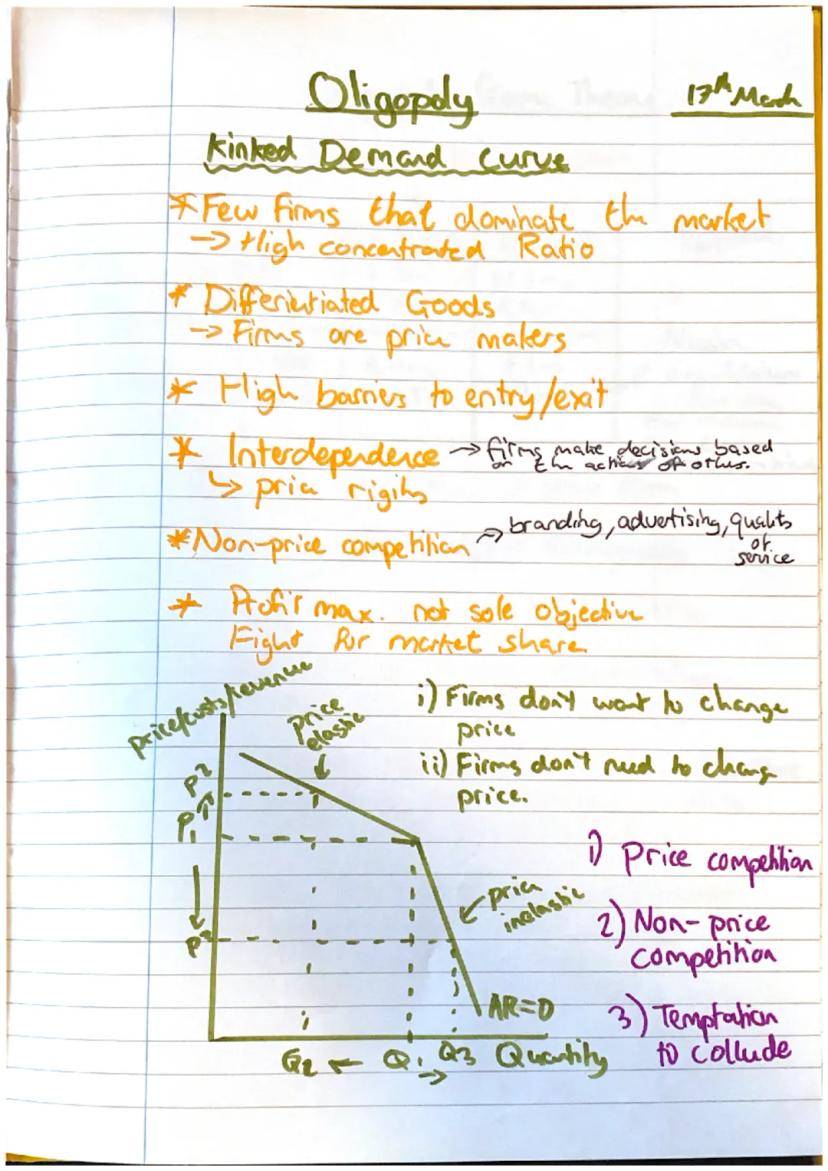 Oligopoly
17th March
Kinked Demand Curve
* Few firms that dominate the market
→ High concentrated Ratio
* Differentiated Goods
→ Firms are price makers
* High barriers to entry/exit
* Interdependence → firms make decisions based
on the actions of others.
↳ price rigity
* Non-price competition → branding, advertising, quality
of
service
* Profit max. not sole objective
Fight for market share
price/costs/revenue
price
elastic
i) Firms don't want to change
price
ii) Firms don't need to change
price.
P2
P1
price
inelastic
P3
AR=D
Q2 ← Q1 → Q3 Quantity
1) Price competition
2) Non-price
competition
3) Temptation
to collude